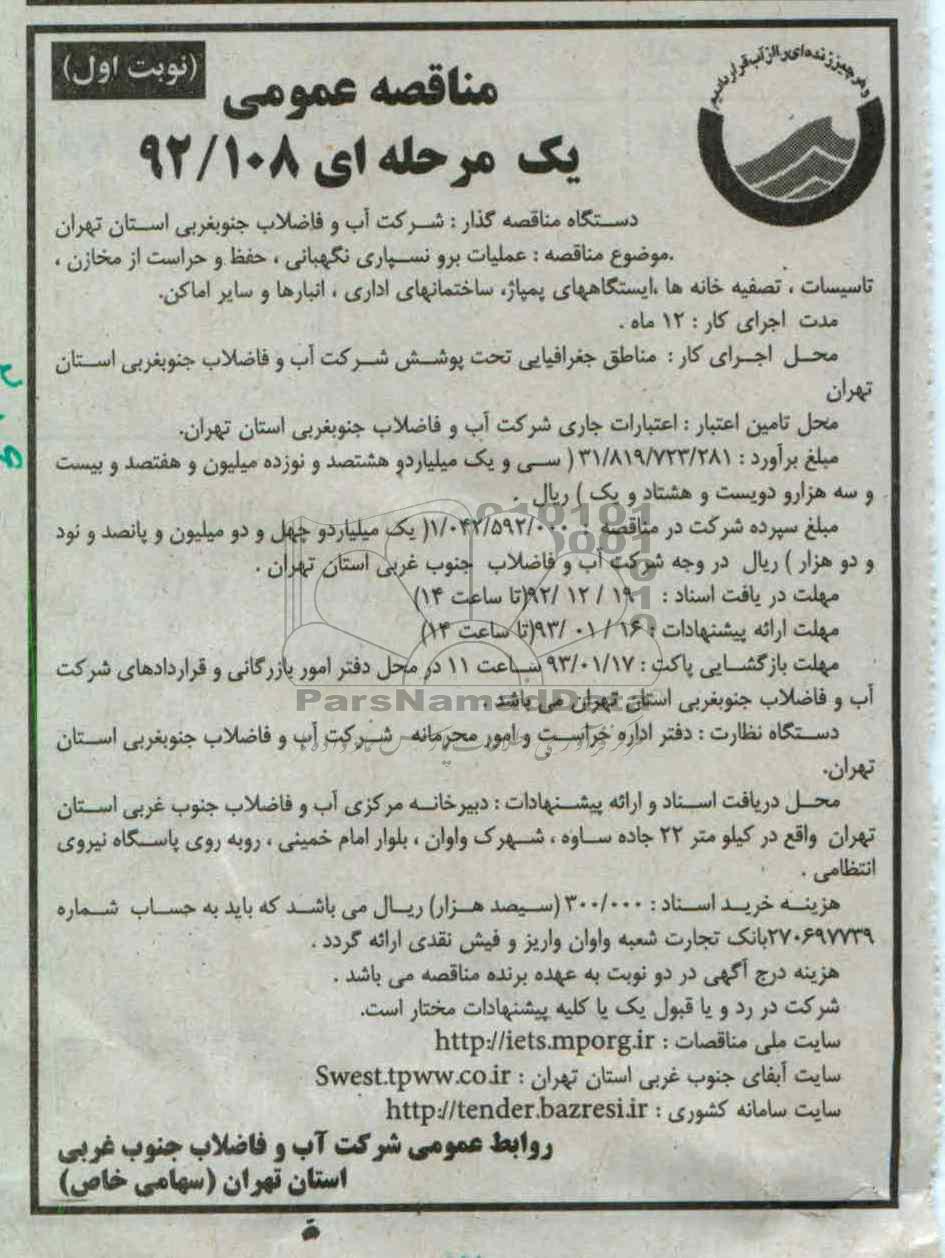 (نوبت اول)
و هر چیز زنده‌ای را از آب قرار دادیم
مناقصه عمومی
یک مرحله ای ۹۲/۱۰۸
دستگاه مناقصه گذار : شرکت آب و فاضلاب جنوبغربی استان تهران
.موضوع مناقصه : عملیات برو نسپاری نگهبانی ، حفظ و حراست از مخازن ،
تاسیسات ، تصفیه خانه ها ،ایستگاههای پمپاژ، ساختمانهای اداری ، انبارها و سایر اماکن.
مدت اجرای کار : ۱۲ ماه .
محل اجرای کار : مناطق جغرافیایی تحت پوشش شرکت آب و فاضلاب جنوبغربی استان
تهران
محل تامین اعتبار : اعتبارات جاری شرکت آب و فاضلاب جنوبغربی استان تهران.
مبلغ برآورد : ۳۱/۸۱۹/۷۲۳/۲۸۱ ( سی و یک میلیاردو هشتصد و نوزده میلیون و هفتصد و بیست
و سه هزارو دویست و هشتاد و یک ) ریال .
مبلغ سپرده شرکت در مناقصه : ۱/۰۴۲/۵۹۲/۰۰۰( یک میلیاردو چهل و دو میلیون و پانصد و نود
و دو هزار ) ریال در وجه شرکت آب و فاضلاب جنوب غربی استان تهران .
مهلت در یافت اسناد : ۱۹ / ۱۲ /۹۲(تا ساعت ۱۴)
مهلت ارائه پیشنهادات : ۱۶ / ۰۱ /۹۳(تا ساعت ۱۴)
مهلت بازگشایی پاکت : ۹۳/۰۱/۱۷ ساعت ۱۱ در محل دفتر امور بازرگانی و قراردادهای شرکت
آب و فاضلاب جنوبغربی استان تهران می باشد .
ParsNamadData
دستگاه نظارت : دفتر اداره حراست و امور محرمانه شرکت آب و فاضلاب جنوبغربی استان
تهران.
محل دریافت اسناد و ارائه پیشنهادات : دبیرخانه مرکزی آب و فاضلاب جنوب غربی استان
تهران واقع در کیلو متر ۲۲ جاده ساوه ، شهرک واوان ، بلوار امام خمینی ، روبه روی پاسگاه نیروی
انتظامی .
هزینه خرید اسناد : ۳۰۰/۰۰۰ (سیصد هزار) ریال می باشد که باید به حساب شماره
۲۷۰۶۹۷۷۳۹بانک تجارت شعبه واوان واریز و فیش نقدی ارائه گردد .
هزینه درج آگهی در دو نوبت به عهده برنده مناقصه می باشد .
شرکت در رد و یا قبول یک یا کلیه پیشنهادات مختار است.
سایت ملی مناقصات : http://iets.mporg.ir
سایت آبفای جنوب غربی استان تهران : Swest.tpww.co.ir
سایت سامانه کشوری : http://tender.bazresi.ir
روابط عمومی شرکت آب و فاضلاب جنوب غربی
استان تهران (سهامی خاص)